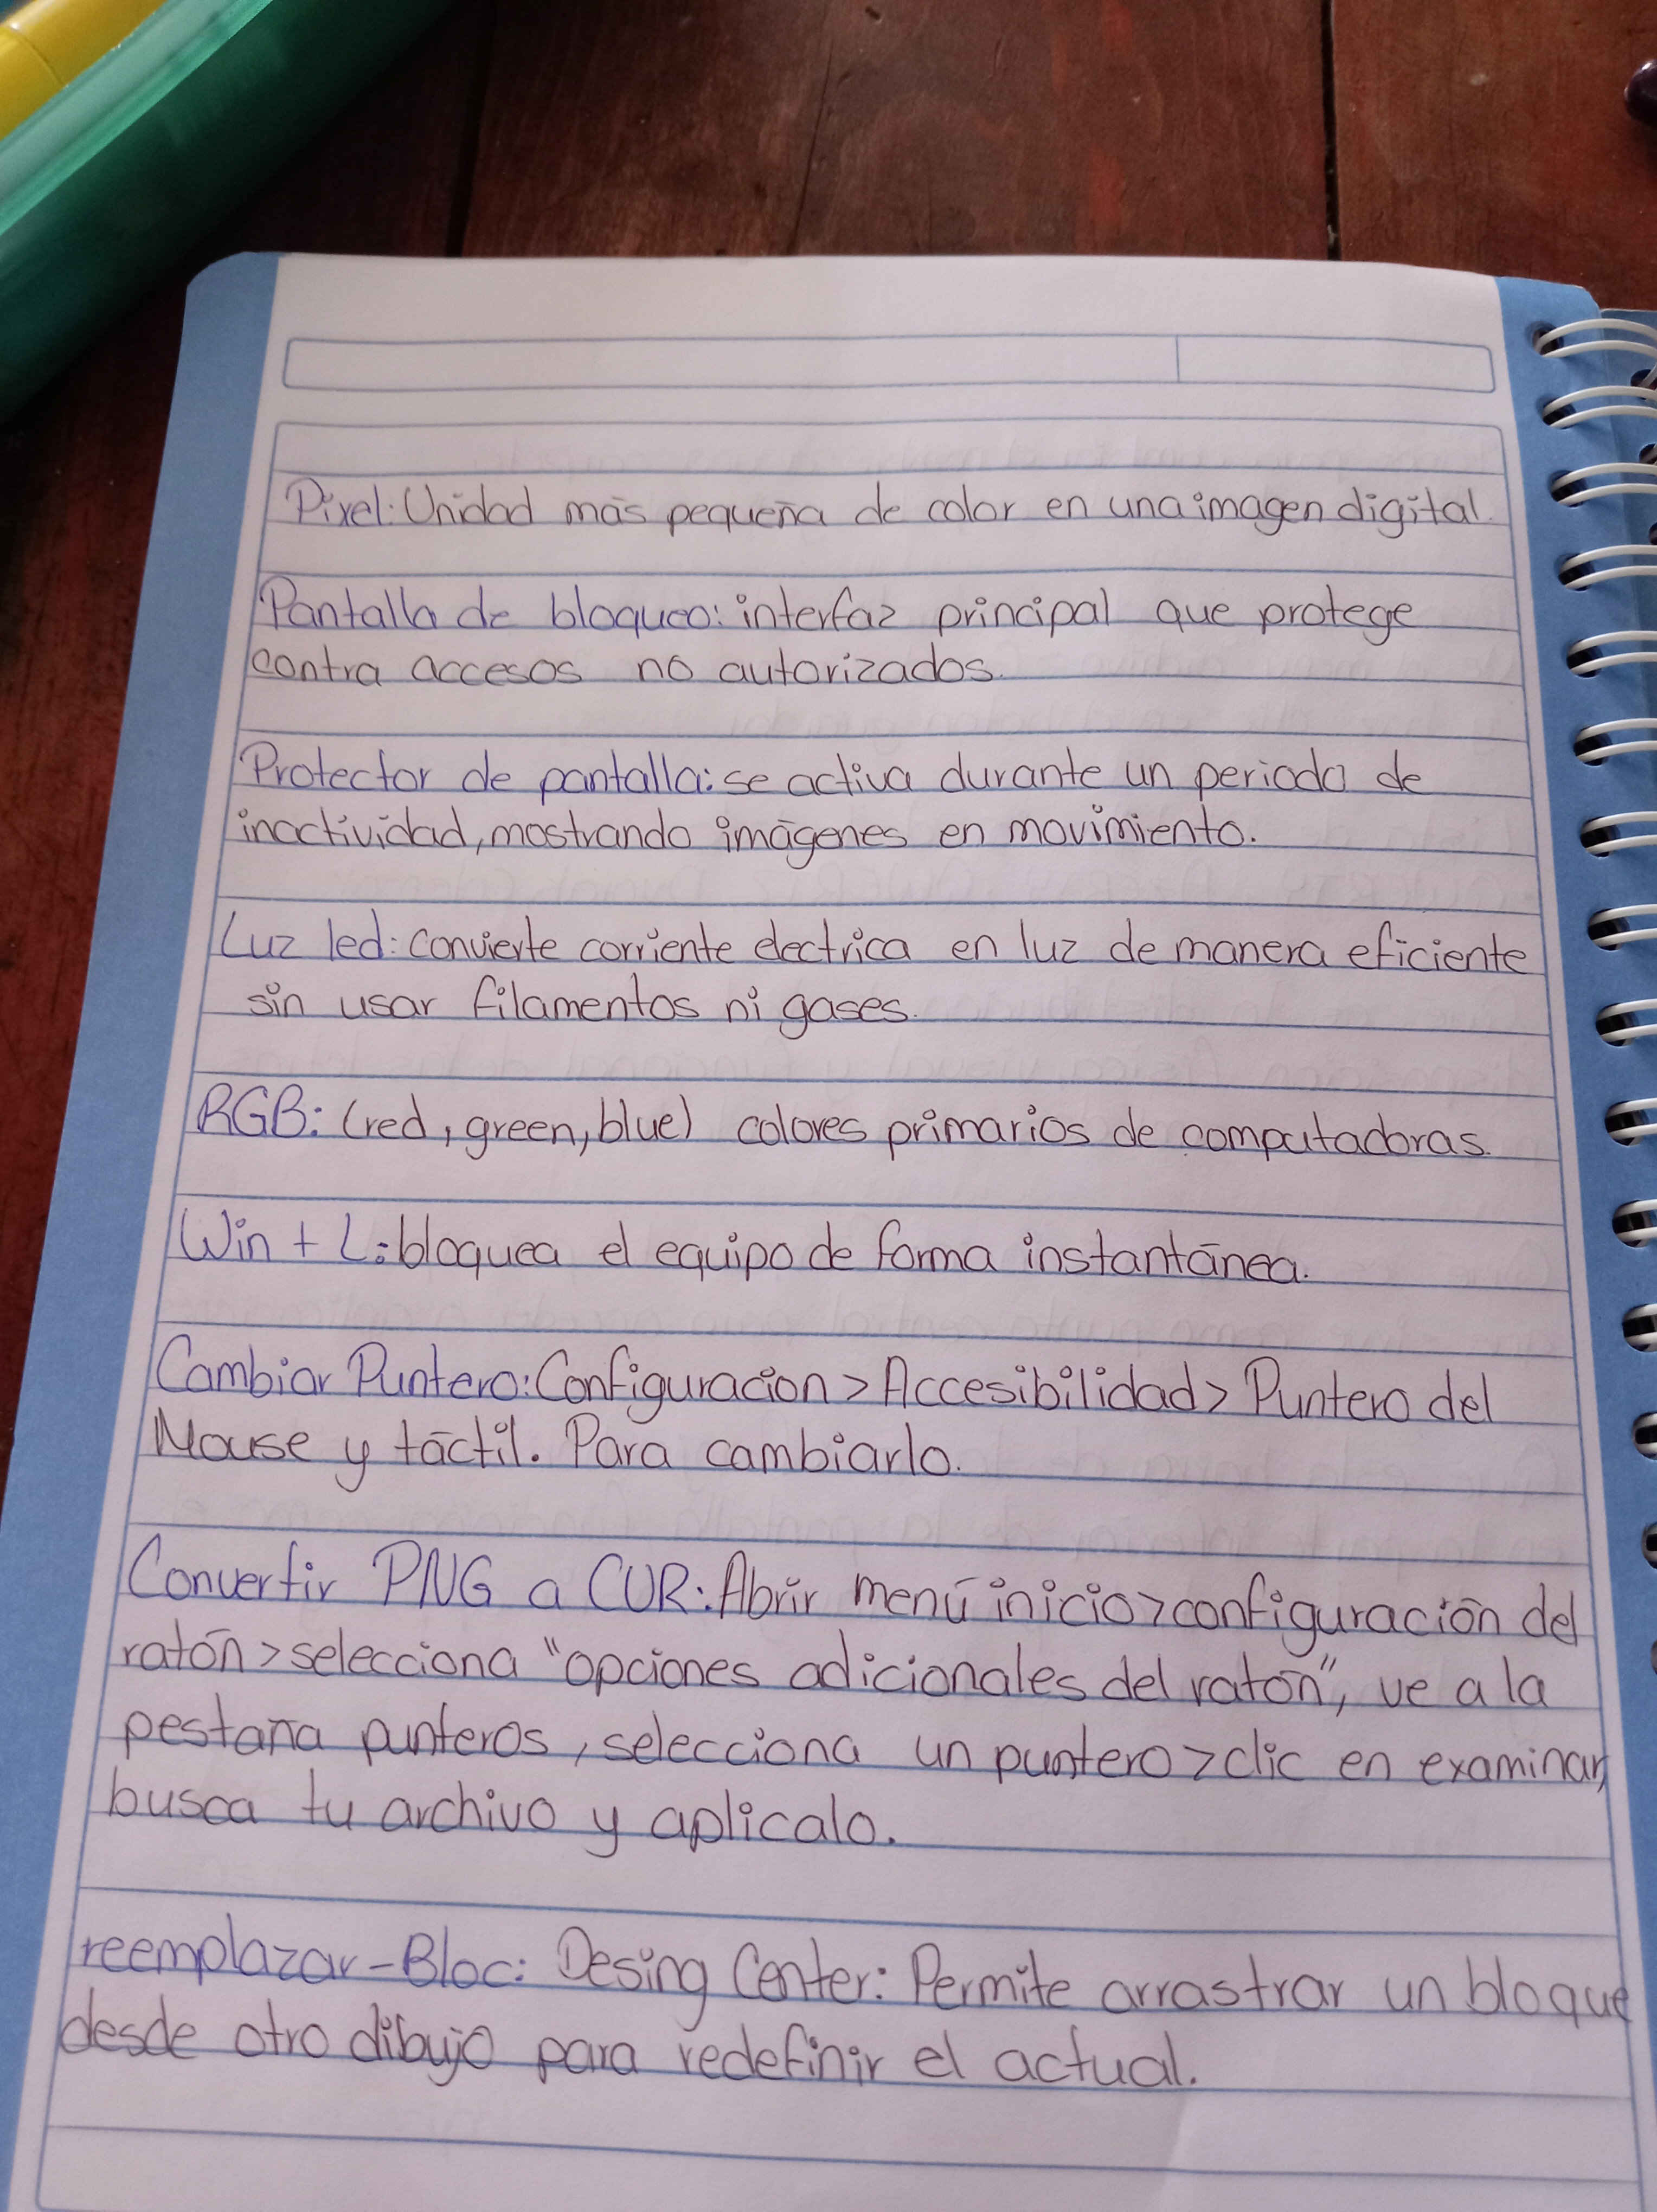 Pixel: Unidad más pequeña de color en una imagen digital.
Pantalla de bloqueo: interfaz principal que protege
contra accesos no autorizados.
Protector de pantalla: se activa durante un periodo de
inactividad, mostrando imágenes en movimiento.
Luz led: convierte corriente electrica en luz de manera eficiente
sin usar filamentos ni gases.
RGB: (red, green, blue) colores primarios de computadoras.
Win + L: bloquea el equipo de forma instantánea.
Cambiar Puntero: Configuracion > Accesibilidad > Puntero del
Mouse y táctil. Para cambiarlo.
Convertir PNG a CUR: Abrir menú inicio > configuración del
ratón > selecciona "opciones adicionales del ratón", ve a la
pestaña punteros, selecciona un puntero > clic en examinar,
busca tu archivo y aplicalo.
reemplazar-Bloc: Desing Center: Permite arrastrar un bloque
desde otro dibujo para redefinir el actual.